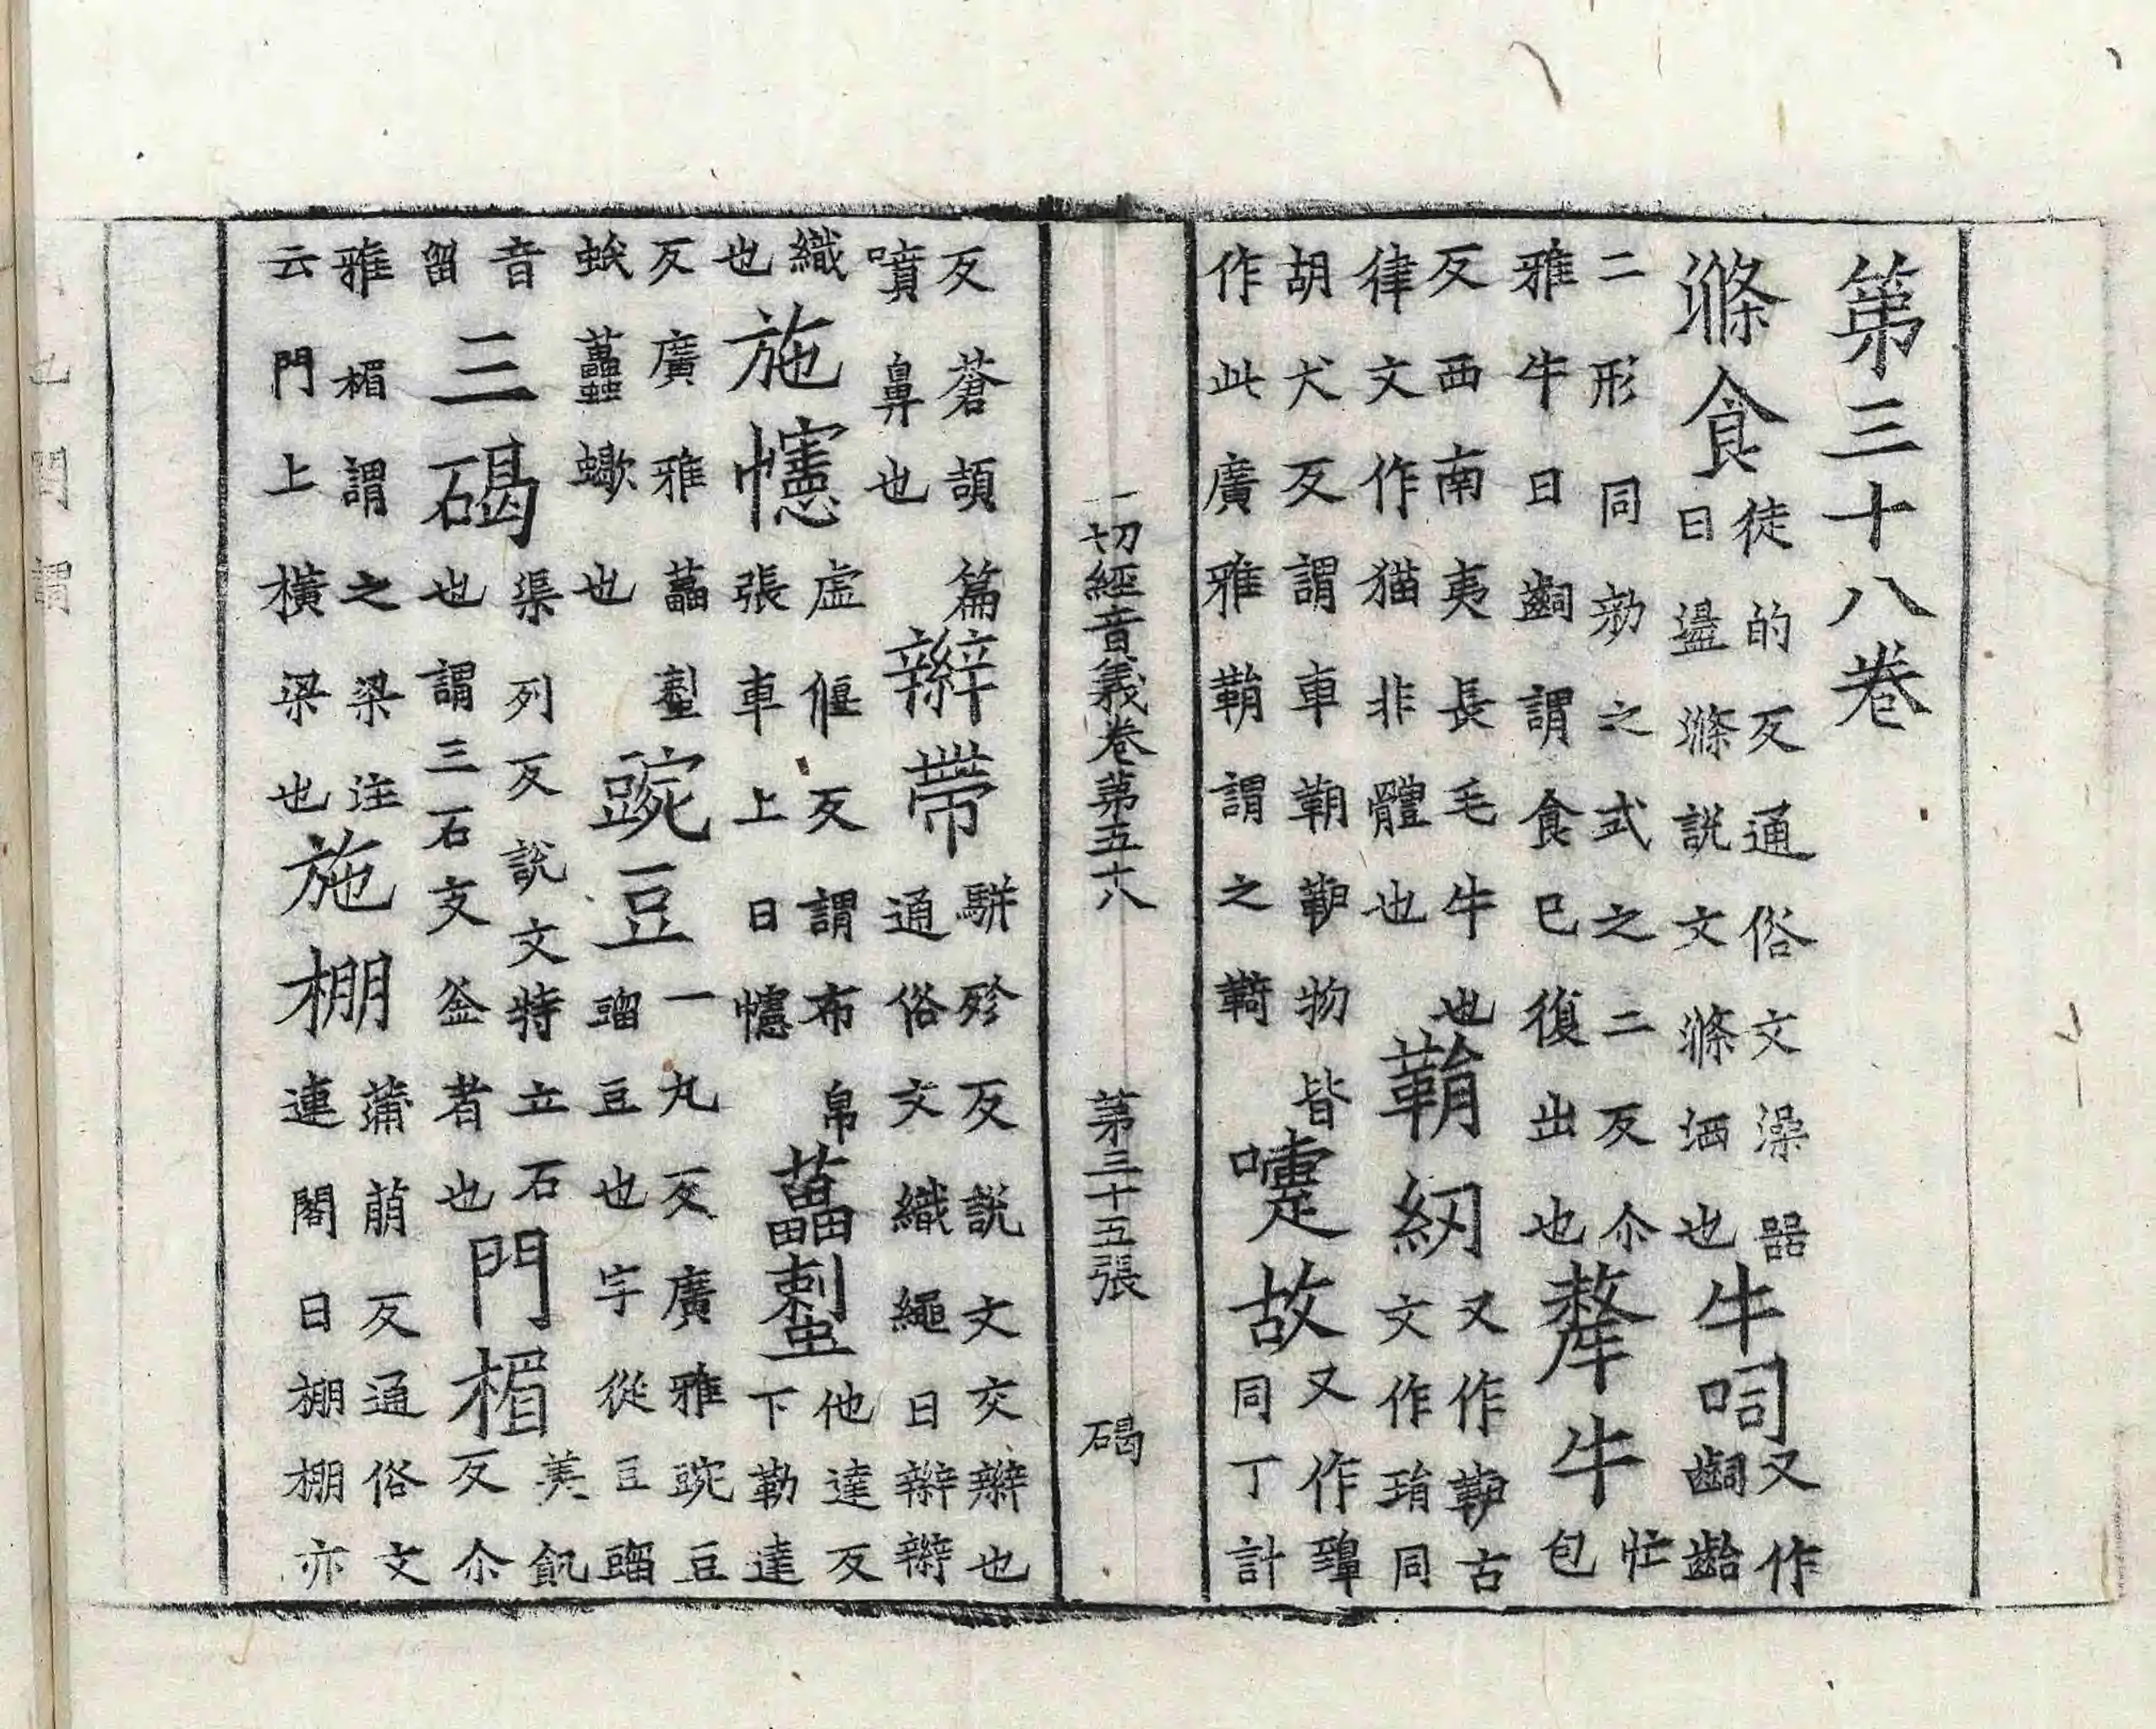 第三十八卷
滌食徒的反通俗文澡器曰盪滌說文滌洒也牛呞又作𪗪齝
二形同勑之式之二反尒雅牛曰𪗪謂食巳復出也犛牛忙包
反西南夷長毛牛也律文作猫非體也鞙紉又作古文作琄同
胡犬反謂車鞙物皆作此廣雅鞙謂之嚏故又作同丁計
一切經音義卷第五十八 第三十五張 碣
反蒼頡篇噴鼻也辮帶駢殄反說文交辮也通俗文織繩曰辮辮
織也施幰虛偃反謂布帛張車上曰幰他達反下勒達
反廣雅蛷蠍也豌豆一丸反廣雅豌豆䝀豆也字從豆䝀
音留三碣渠列反說文特立石也謂三石支釜者也門楣美飢反尒
雅楣謂之梁注云門上橫梁也施棚蒲萠反通俗文連閣曰棚棚亦